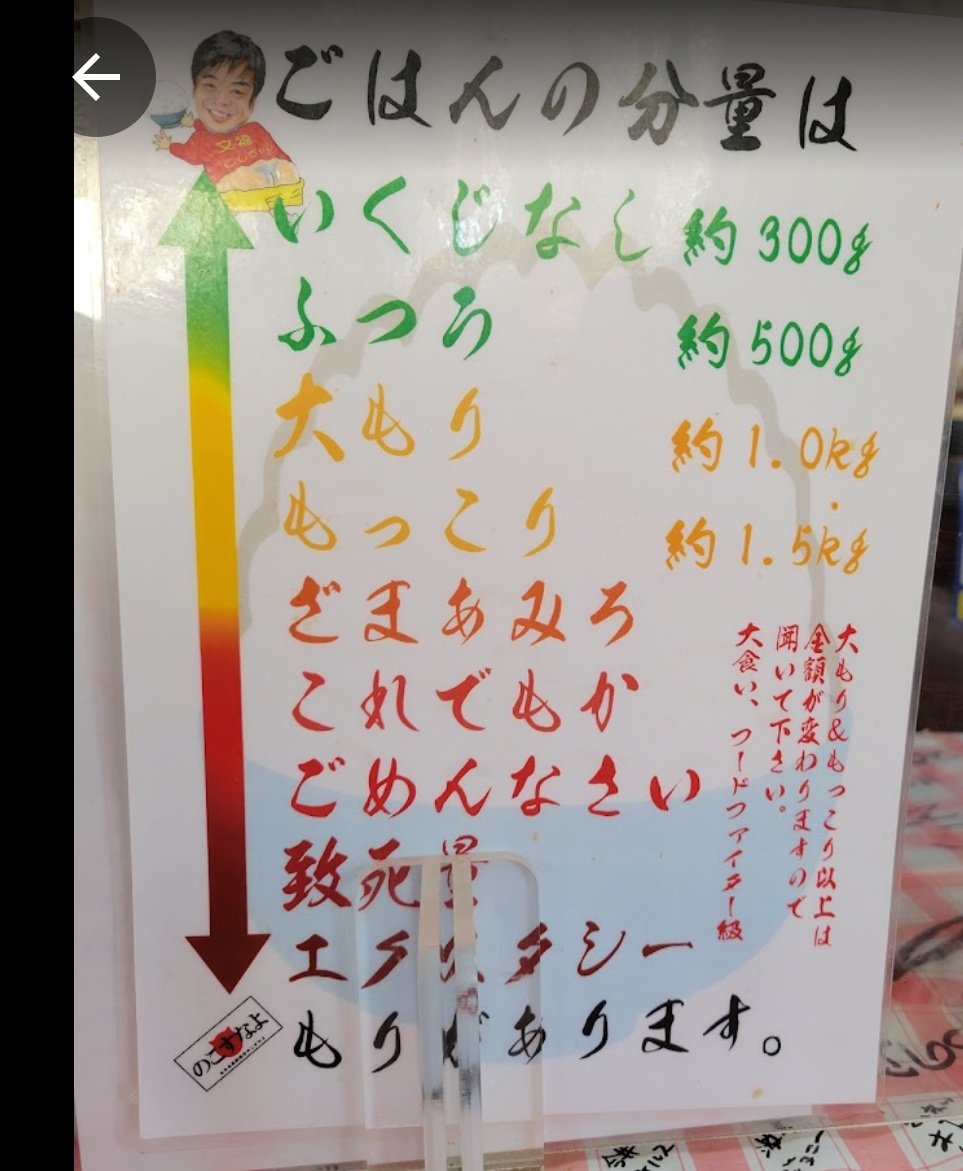 ごはんの分量は
文福
いくじなし 約300g
ふつう 約500g
大もり 約1.0kg
もっこり 約1.5kg
ざまあみろ
これでもか
ごめんなさい
致死量
エクスタシー
もりがあります。
大もり&もっこり以上は
金額が変わりますので
聞いて下さい。
大食い、フードファイター級
のこすなよ